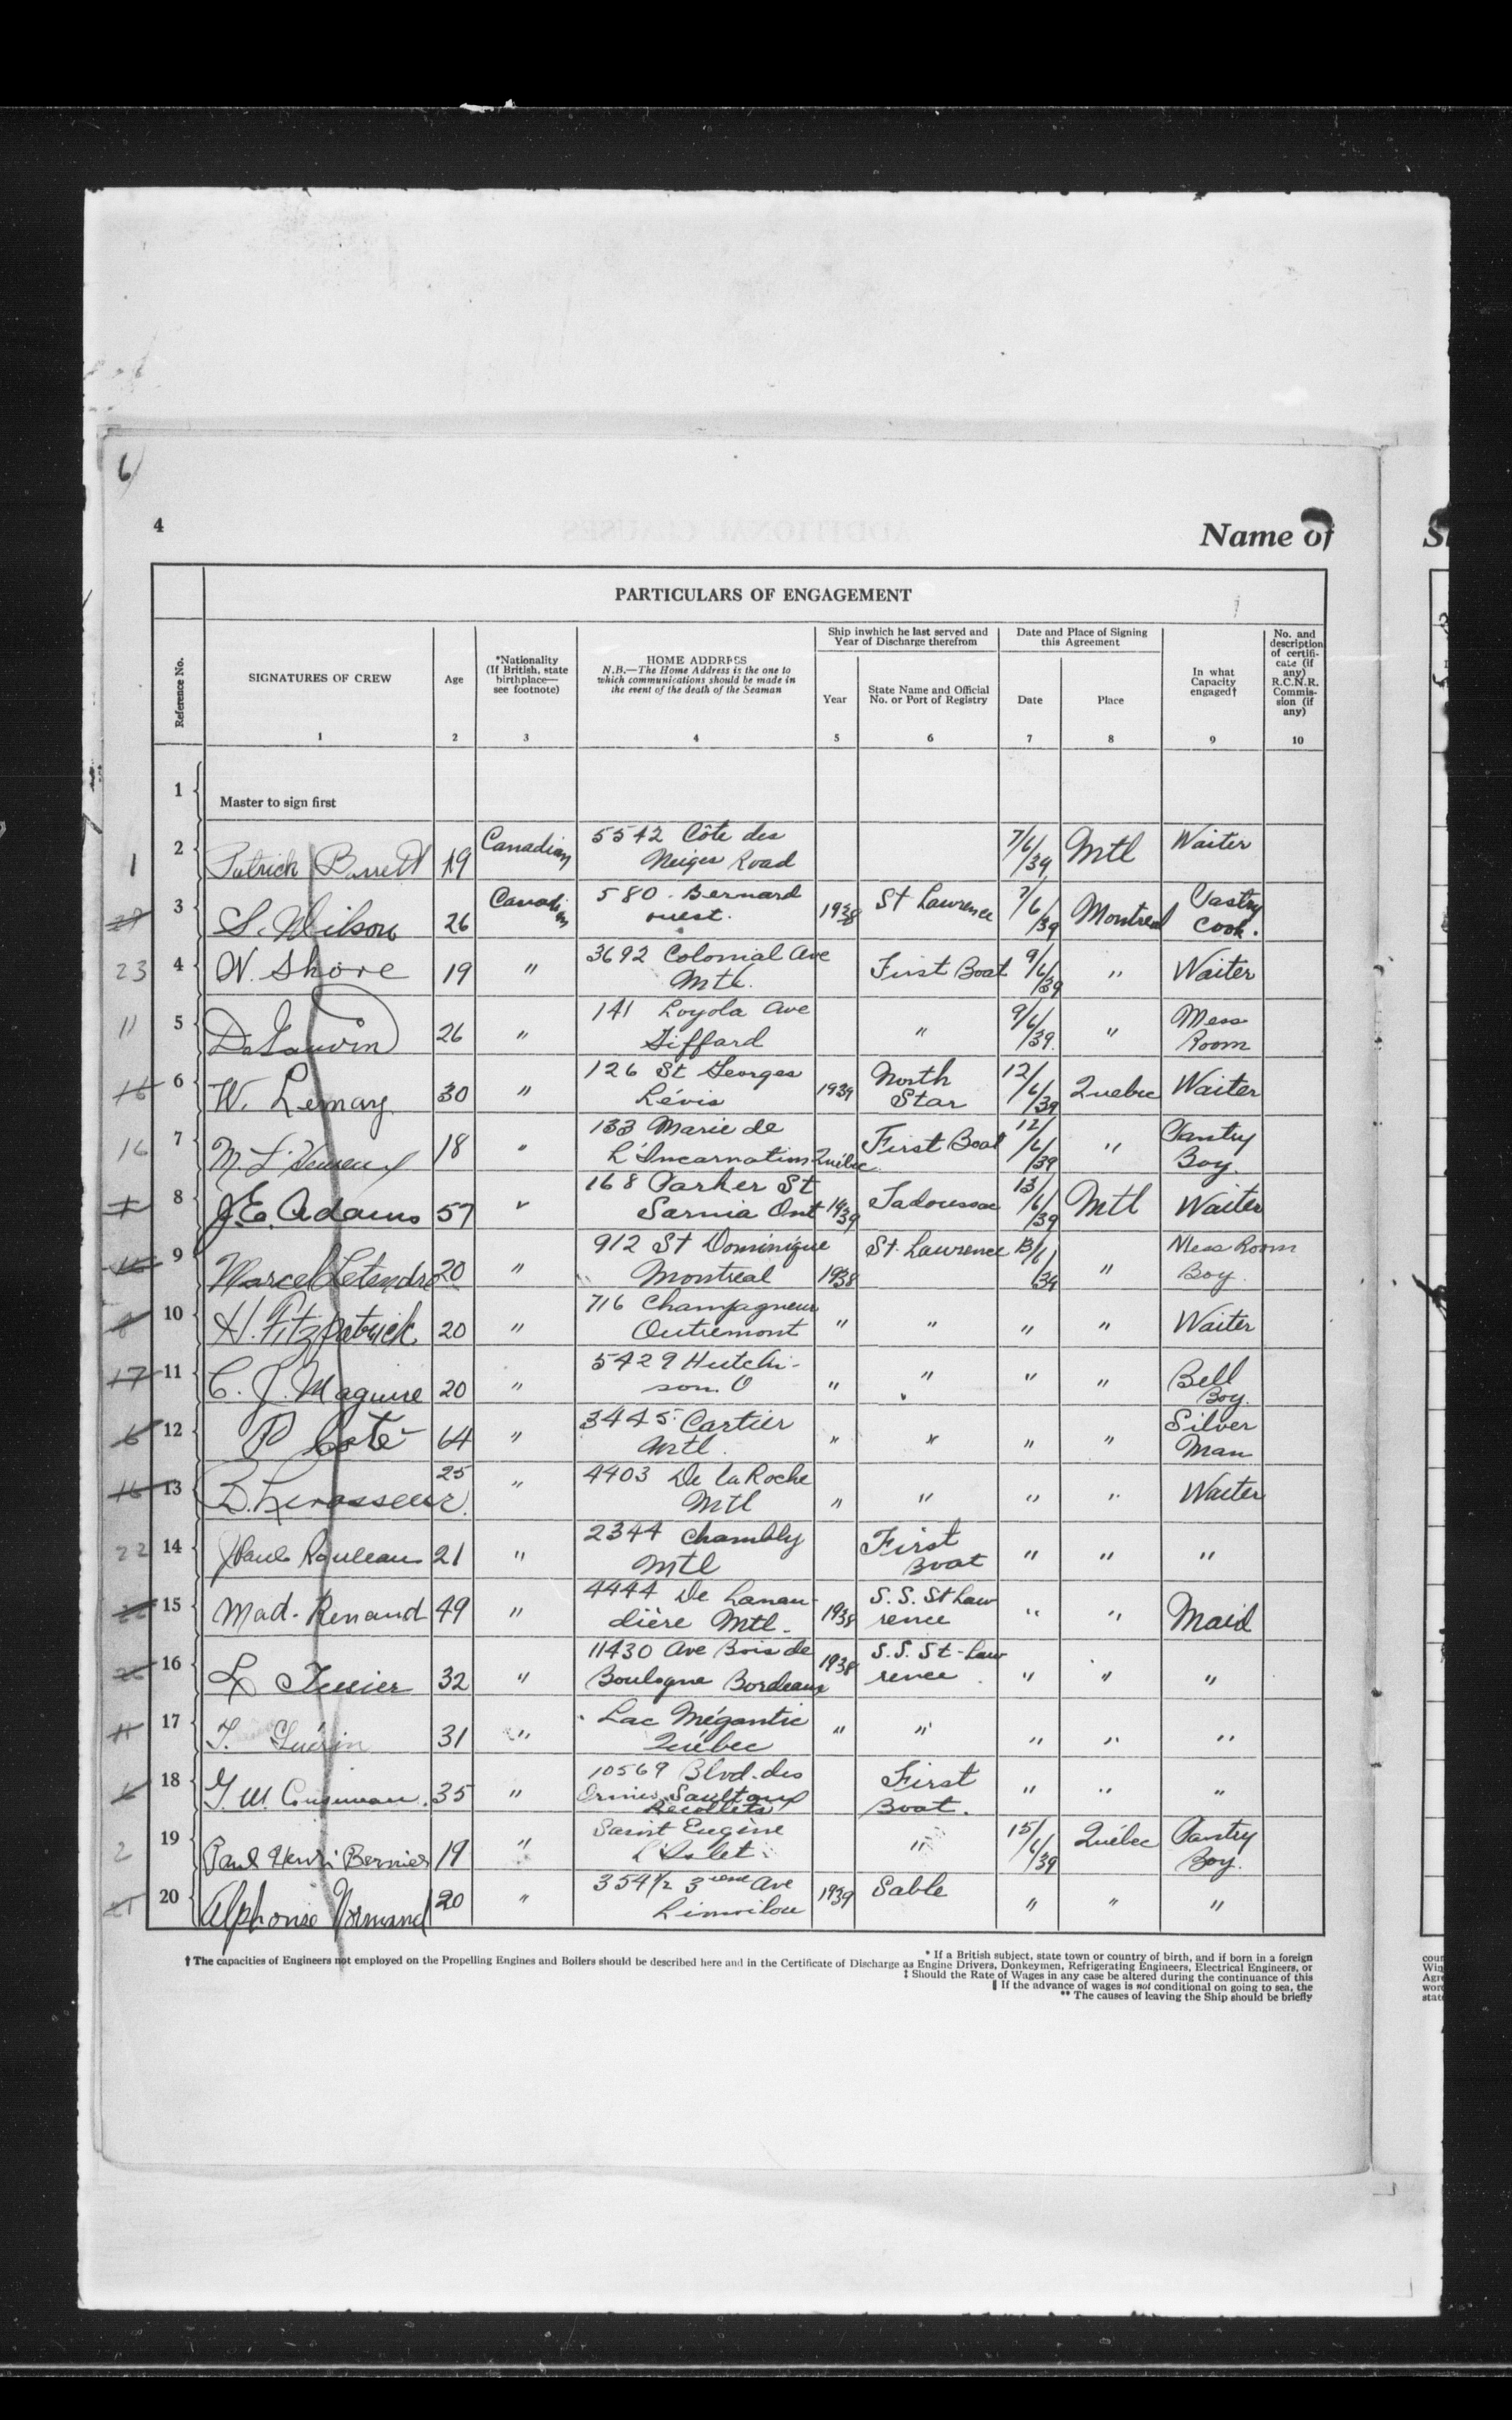 6
4
Name of
PARTICULARS OF ENGAGEMENT
Reference No.
SIGNATURES OF CREW
Age
*Nationality
(If British, state
birthplace—
see footnote)
HOME ADDRESS
N.B.—The Home Address is the one to
which communications should be made in
the event of the death of the Seaman
Ship inwhich he last served and
Year of Discharge therefrom
Year
State Name and Official
No. or Port of Registry
Date and Place of Signing
this Agreement
Date
Place
In what
Capacity
engaged†
No. and
description
of certifi-
cate (if
any)
R.C.N.R.
Commis-
sion (if
any)
1 2 3 4 5 6 7 8 9 10
1 Master to sign first
1 2 Patrick Barrett 19 Canadian 5542 Côte des
Neiges Road 7/6/39 Mtl Waiter
3 S. Wilson 26 Canadian 580 Bernard
ouest. 1938 St Lawrence 7/6/39 Montreal Pastry
Cook.
23 4 N. Shore 19 " 3692 Colonial Ave
Mtl. First Boat 9/6/39 " Waiter
11 5 26 " 141 Loyola Ave
Giffard " 9/6/39 " Mess
Room
16 6 W. Lemay 30 " 126 St Georges
Lévis 1939 North
Star 12/6/39 Quebec Waiter
16 7 18 " 133 Marie de
L'Incarnation Québec First Boat 12/6/39 " Pantry
Boy.
8 J.E. Adams 57 " 168 Parker St
Sarnia Ont 1939 Tadoussac 13/6/39 Mtl Waiter
9 Marcel Letendre 20 " 912 St Dominique
Montreal 1938 St. Lawrence 13/6/39 " Mess Room
Boy.
8 10 H. Fitzpatrick 20 " 716 Champagneur
Outremont " " " " Waiter
17 11 C. J. Maguire 20 " 5429 Hutchi-
son O " " " " Bell
Boy.
6 12 P Coté 64 " 3445 Cartier
Mtl. " " " " Silver
Man
16 13 25 " 4403 De la Roche
Mtl " " " " Waiter
22 14 J Paul Rouleau 21 " 2344 Chambly
Mtl First
Boat " " "
15 Mad. Renaud 49 " 4444 De Lanau-
dière Mtl. 1938 S.S. St Law
rence " " Maid
16 L Tessier 32 " 11430 Ave Bois de
Boulogne Bordeaux 1938 S.S. St-Law
rence " " "
11 17 T. Guérin 31 " Lac Mégantic
Québec " " " " "
6 18 35 " 10569 Blvd. des
Ormes Sault aux
Recollets First
Boat. " " "
2 19 Paul Henri Bernier 19 " Saint Eugène
L'Islet " 15/6/39 Québec Pantry
Boy.
20 Alphonse Normand 20 " 354½ 3ieme Ave
Limoilou 1939 Sable " " "
* If a British subject, state town or country of birth, and if born in a foreign
† The capacities of Engineers not employed on the Propelling Engines and Boilers should be described here and in the Certificate of Discharge as Engine Drivers, Donkeymen, Refrigerating Engineers, Electrical Engineers, or
‡ Should the Rate of Wages in any case be altered during the continuance of this
‖ If the advance of wages is not conditional on going to sea, the
** The causes of leaving the Ship should be briefly